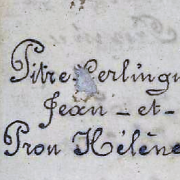 Pitre Gerlingu
Jean - et -
Pron Hélène